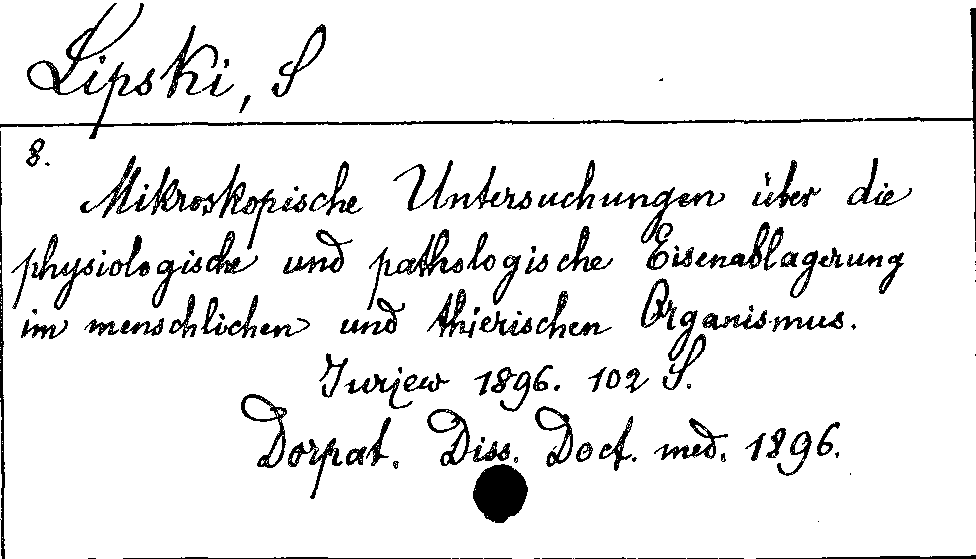 Lipski, S
8.
Mikroskopische Untersuchungen über die
physiologische und pathologische Eisenablagerung
im menschlichen und thierischen Organismus.
Jurjew 1896. 102 S.
Dorpat. Diss. Doct. med. 1896.